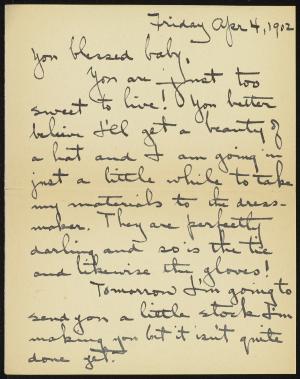 Friday Apr 4, 1902
You blessed baby,
You are just too
sweet to live! You better
believe I'll get a beauty of
a hat and I am going in
just a little while to take
my materials to the dress-
maker. They are perfectly
darling and so is the tie
and likewise the gloves!
Tomorrow I'm going to
send you a little stock I'm
making you but it isn't quite
done yet.